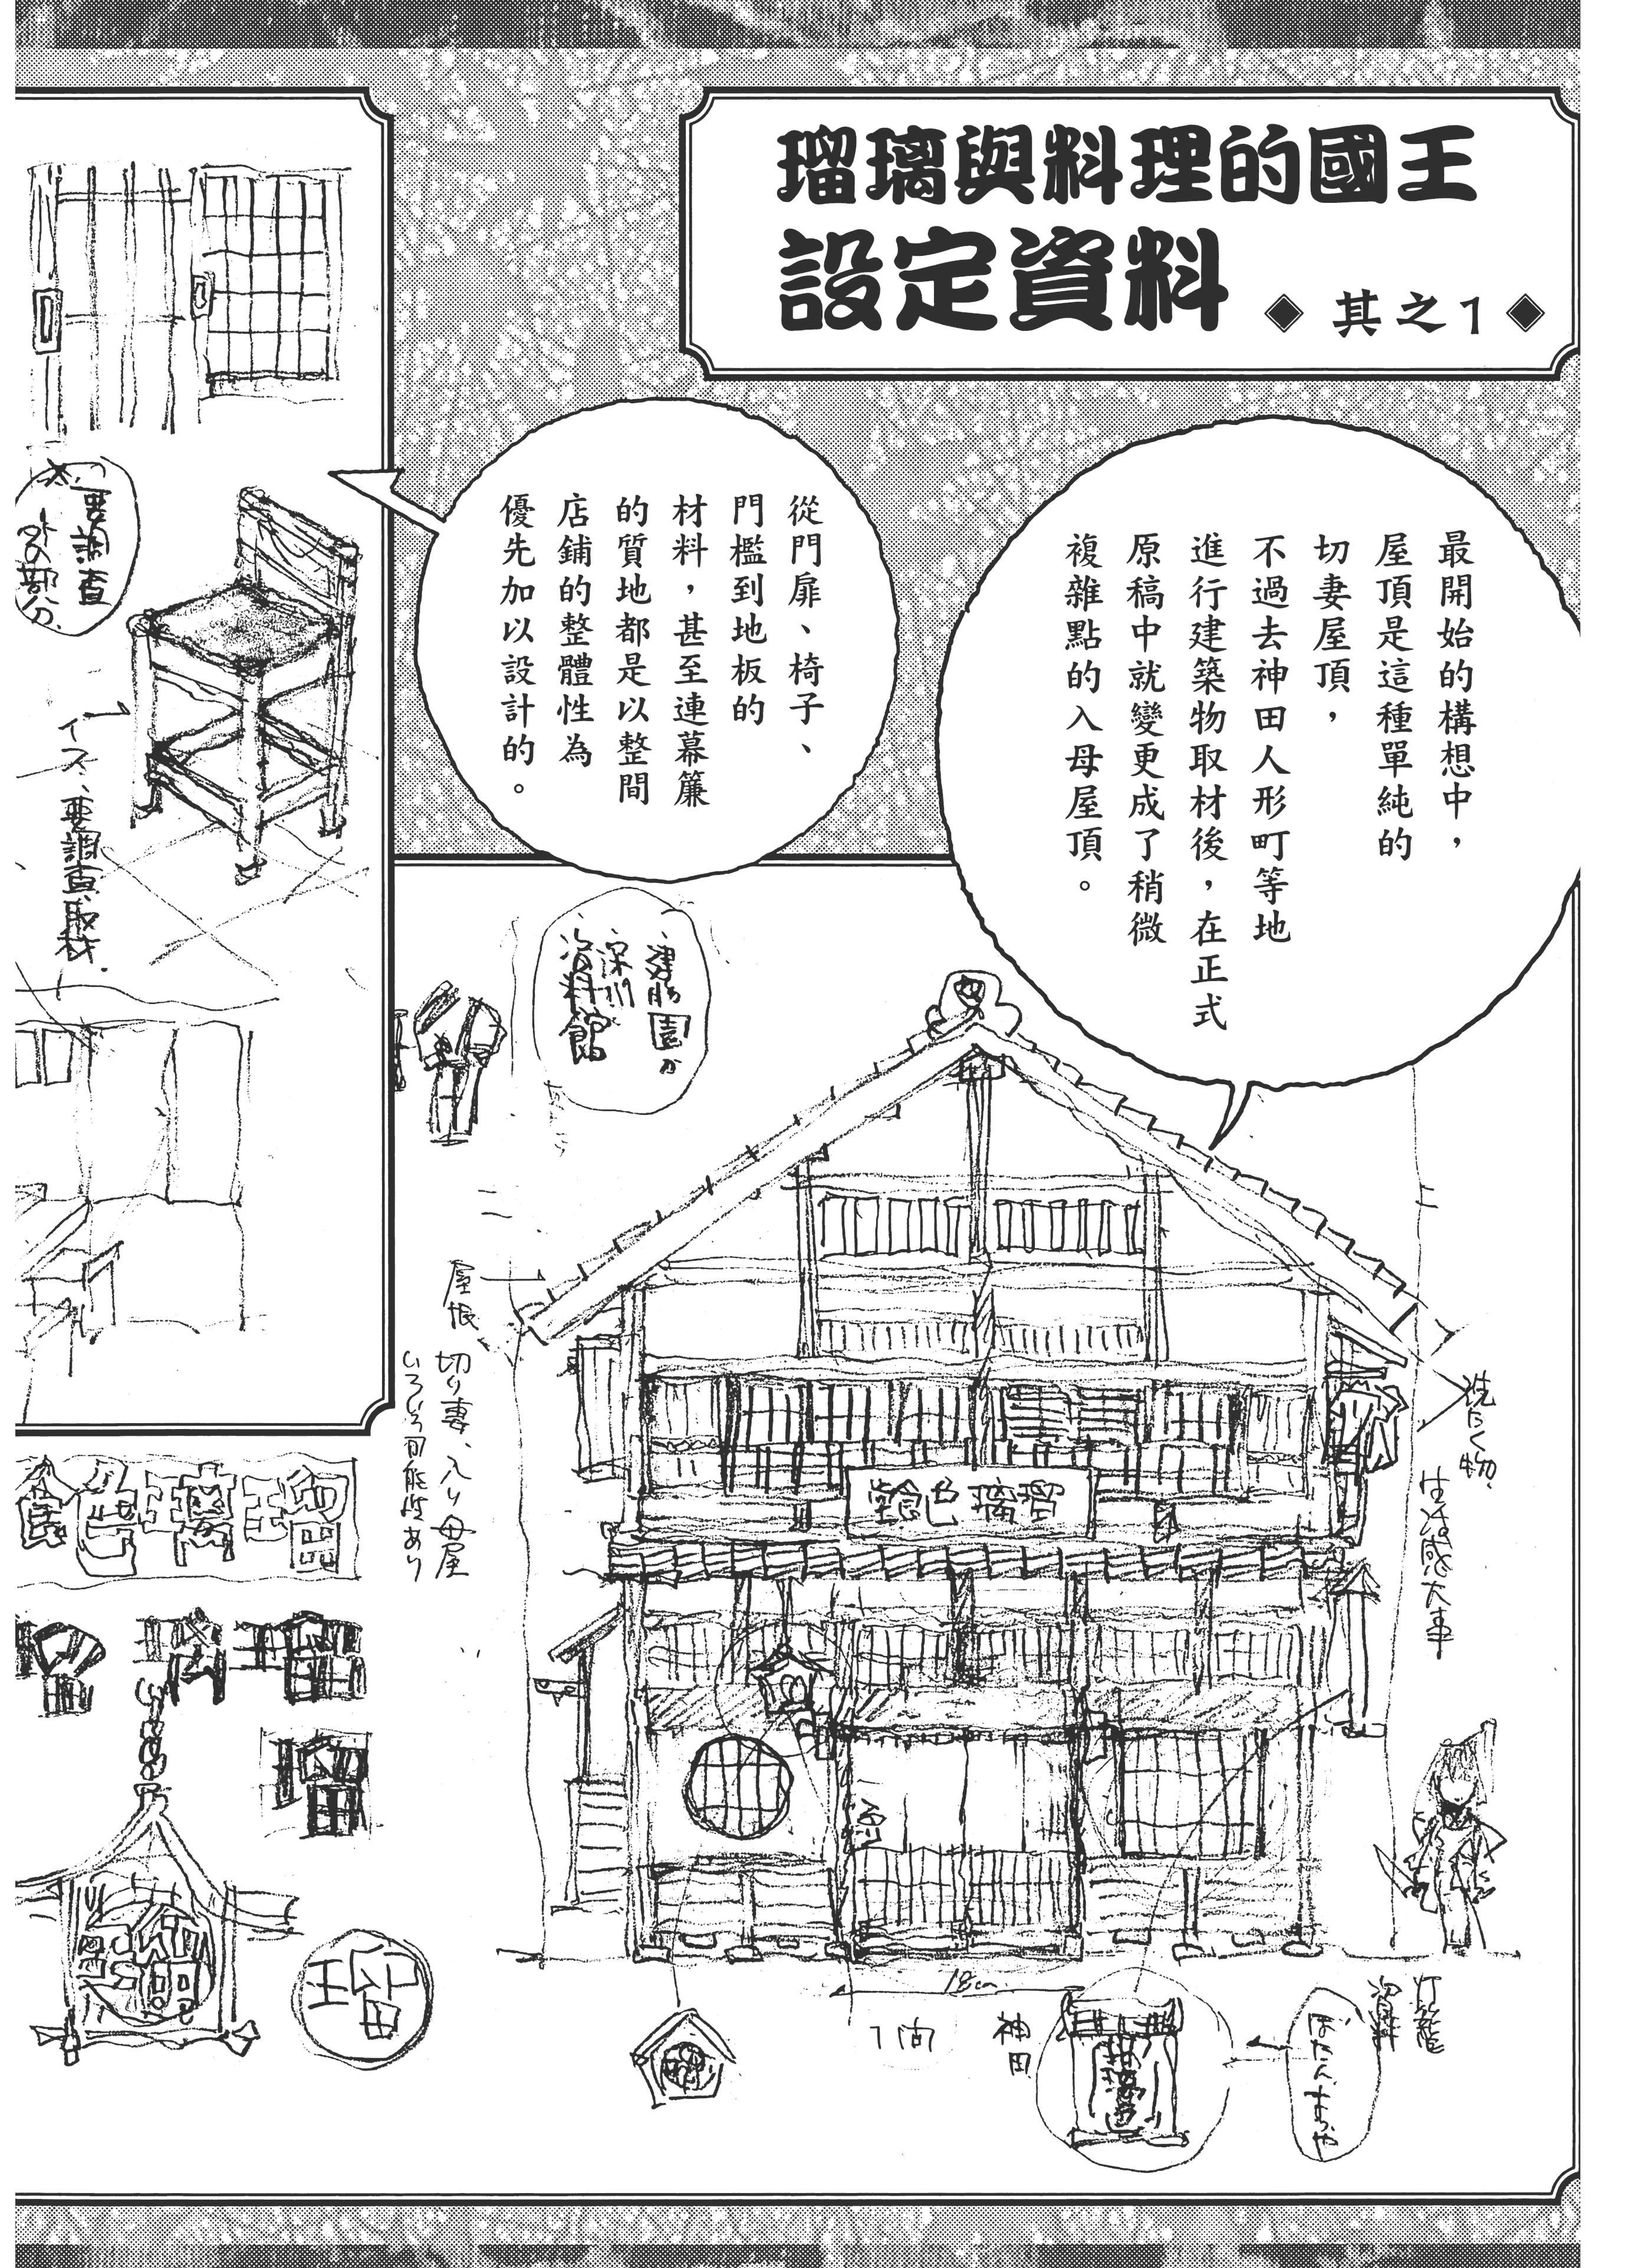 瑠璃與料理的國王
設定資料
◆其之1◆
最開始的構想中，
屋頂是這種單純的
切妻屋頂，
不過去神田人形町等地
進行建築物取材後，在正式
原稿中就變更成了稍微
複雜點的入母屋頂。
從門扉、椅子、
門檻到地板的
材料，甚至連幕簾
的質地都是以整間
店鋪的整體性為
優先加以設計的。
要調査
外の部分
イス、要調査、取材
深川
資料館
屋根
切り妻、入り母屋
いろいろ可能性あり
洗たく物
生活感大事
瑠璃色飴堂
瑠璃色
瑠
18cm
1間
神田
灯籠
資料
ぼたん